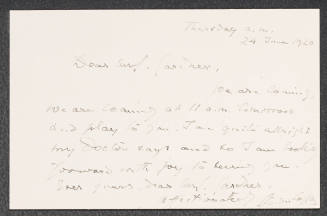 Thursday a.m.
24 June 1920
Dear Mrs. Gardner,
We are coming
we are coming at 11 a.m. tomorrow
and play to you. I am quite allright
my Doctor says and so I am
forward with joy to you.
Ever yours dear Mrs. Gardner,
affectionately